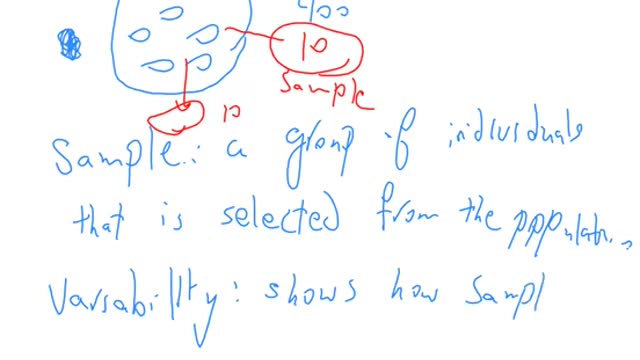 10
Sample
10
Sample: a group of individuals
that is selected from the ppp
Varsability: shows how sampl